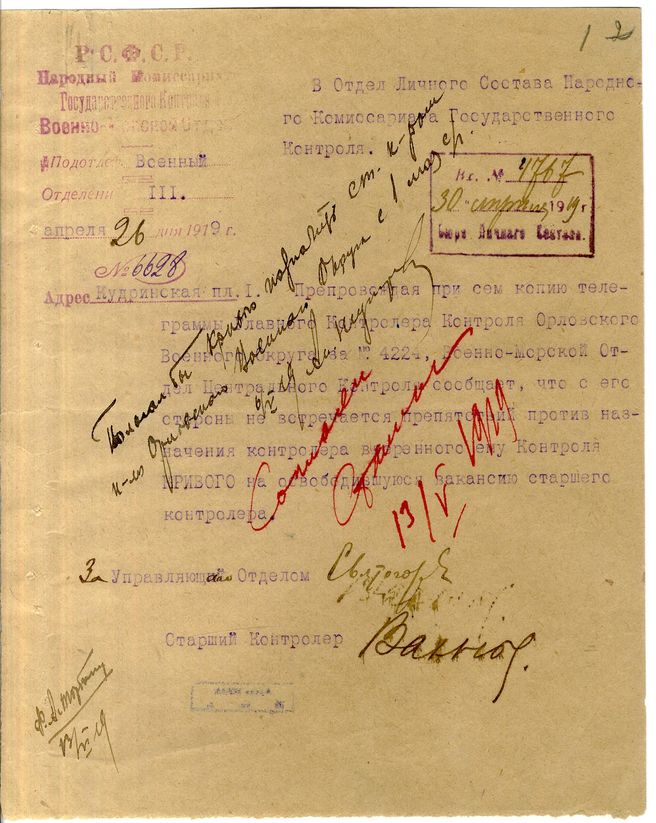 1 2
Р.С.Ф.С.Р.
Народный Комиссариат
Государственного Контроля
Военно-Морской Отдел
Подотдел Военный
Отделени III.
апреля 26 дня 1919 г.
№ 6628
Адрес Кудринская пл. I.
В Отдел Личного Состава Народно-
го Комиссариата Государственного
Контроля.
Вх. № 4767
30 апреля 1919 г.
Бюро Личного Состава.
Препровождая при сем копию теле-
граммы Главного Контролера Контроля Орловского
Военного округа за № 4224, Военно-Морской От-
дел Центрального Контроля сообщает, что с его
стороны не встречается препятствий против наз-
начения контролера вверенного ему Контроля
КРИВОГО на освободившуюся вакансию старшего
контролера.
Полагал бы Кривого назначить ст. к-ром
к-ля Орловского Военного Округа с 1 мая с/г.
Согласен
13/V 1919
За Управляющ Отделом
Старший Контролер
13/VI 19